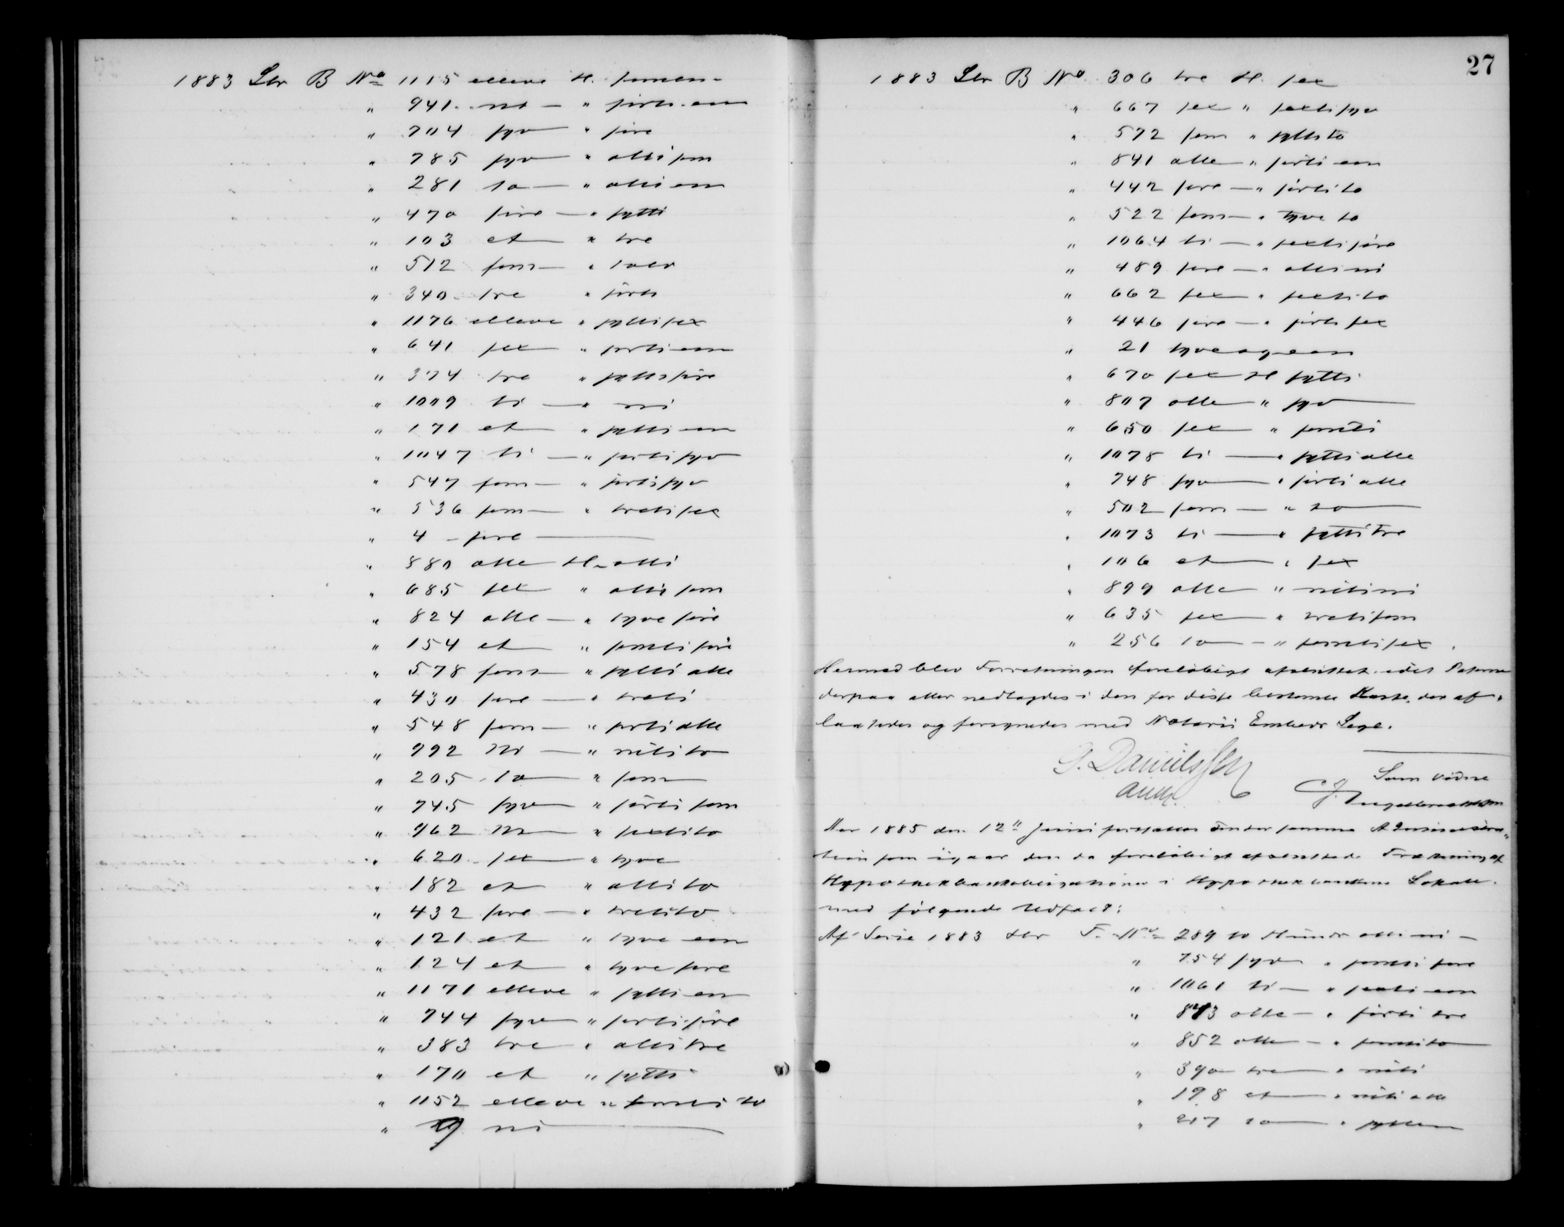 1883 Ltr B No 1115 elleve H. femten
" 941 ni — " førti een
" 704 syv " fire
" 785 syv " otti fem
" 281 to — " otti een
" 470 fire — " sytti
" 103 et — " tre
" 512 fem — " tolv
" 340 tre " førti
" 1176 elleve " sytti sex
" 641 sex " førti een
" 374 tre " sytti fire
" 1009 ti — " ni
" 171 et " sytti een
" 1047 ti — " førti syv
" 547 fem — " førti syv
" 536 fem — " treti sex
" 4 - fire —
" 880 otte H. otti
" 685 sex " otti fem
" 824 otte — " tyve fire
" 154 et " femti fire
" 578 fem " sytti otte
" 430 fire — " treti
" 548 fem — " førti otte
" 992 ni — " nitito
" 205 to " fem
" 745 syv " førti fem
" 962 ni " sextito
" 620 sex " tyve
" 182 et " ottito
" 432 fire — " tretito
" 121 et " tyve een
" 124 et " tyve fire
" 1171 elleve " sytti een
" 744 syv " førti fire
" 383 tre " otti tre
" 170 et " sytti
" 1152 elleve " femti to
" 9 ni —
27
1883 Ltr B No 306 tre H. sex
" 667 sex " sexti syv
" 572 fem " sytti to
" 841 otte " førti een
" 442 fire — " førti to
" 522 fem — " tyve to
" 1064 ti — " sexti fire
" 489 fire — " otti ni
" 662 sex — " sexti to
" 446 fire — " førti sex
" 21 tyve og een
" 670 sex H sytti
" 807 otte " syv —
" 650 sex " femti
" 1078 ti — " sytti otte
" 748 syv — " førti otte
" 502 fem — " to —
" 1073 ti — " sytti tre
" 106 et — " sex
" 899 otte — " nitini
" 635 sex — " treti fem
" 256 to — " femti sex.
Hermed blev Forretningen foreløbigt afsluttet, idet
derpaa atter nedlagdes i den for disse bestemte Kasse, der af-
laastedes og forsynedes med Notarii Embeds Segl.
D. Danielssen
Som Vidne
J. Ingebrethsen
Aar 1885 den 12te Juni fortsattes under samme Administra-
tion som igaar den da foreløbigt afsluttede Trækning af
Hypothekbankobligationer i Hypothekbankens Lokale
med følgende Udfald:
Af Serie 1883 Ltr F. No 289 to Hundr otti ni —
" 754 syv " femti fire
" 1061 ti — " sexti een
" 843 otte — " førti tre
" 852 otte — " femti to
" 390 tre " niti
" 198 et — " niti otte
" 217 to — " sytten